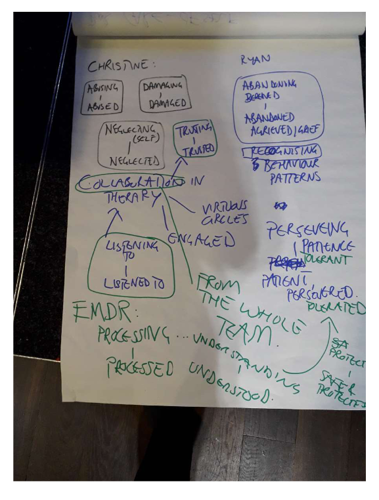 CHRISTINE:
ABUSING
ABUSED
DAMAGING
DAMAGED
NEGLECTING
(SELF)
NEGLECTED
TRUSTING
TRUSTED
COLLABORATORS IN
THERAPY
VIRTUOUS
CIRCLES
ENGAGED
LISTENING
TO
LISTENED TO
FROM
THE WHOLE
TEAM.
EMDR:
PROCESSING ... UNDERSTANDING
PROCESSED UNDERSTOOD.
RYAN
ABANDONING
ABANDONED
AGRIEVED/GRIEF
RECOGNISING
BEHAVIOUR
PATTERNS
PERSEVEING
PATIENCE
TOLERANT
PATIENT,
PERSEVERED.
TOLERATED
PROTECT
SAFER
PROTECTED